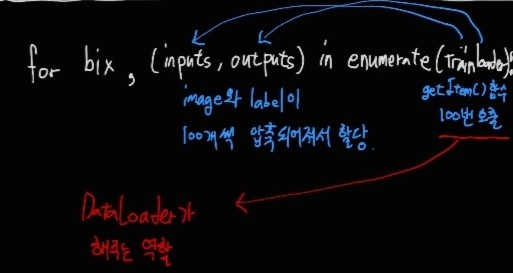 for bix, (inputs, outputs) in enumerate(trainloader):
image와 label이
100개씩 압축되어져서 할당.
getItem() 함수
100번 호출
DataLoader가
해주는 역할